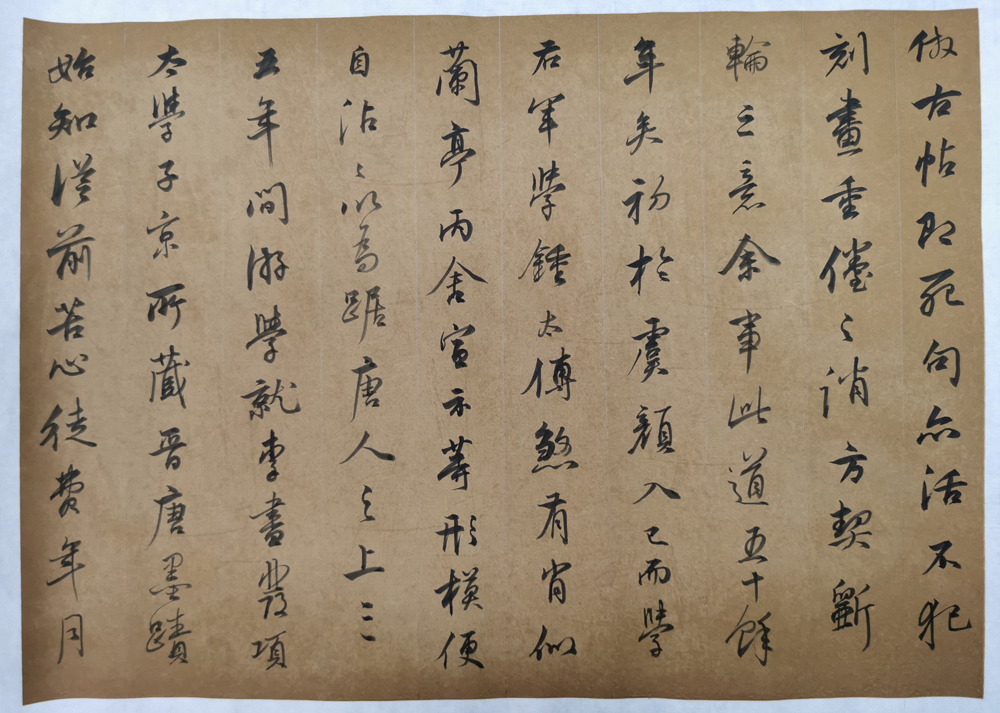 倣古帖即死句亦活不犯
刻畫重儓之誚方契斵
輪之意余事此道五十餘
年矣初於虞顏入已而學
右軍學鍾太傅煞有肖似
蘭亭丙舍宣示等形模便
自沾〻以為踞唐人之上三
五年間游學就李盡發項
太學子京所藏晉唐墨蹟
始知從前苦心徒費年月